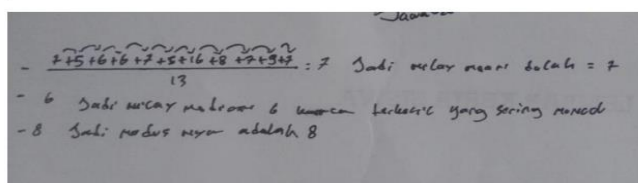 Jawaban
7+5+6+6+7+5+16+8+7+9+7
- = 7 Jadi nilai mean adalah = 7
13
- 6 Jadi nilai median 6 terkecil yang sering muncul
- 8 Jadi modus nya adalah 8